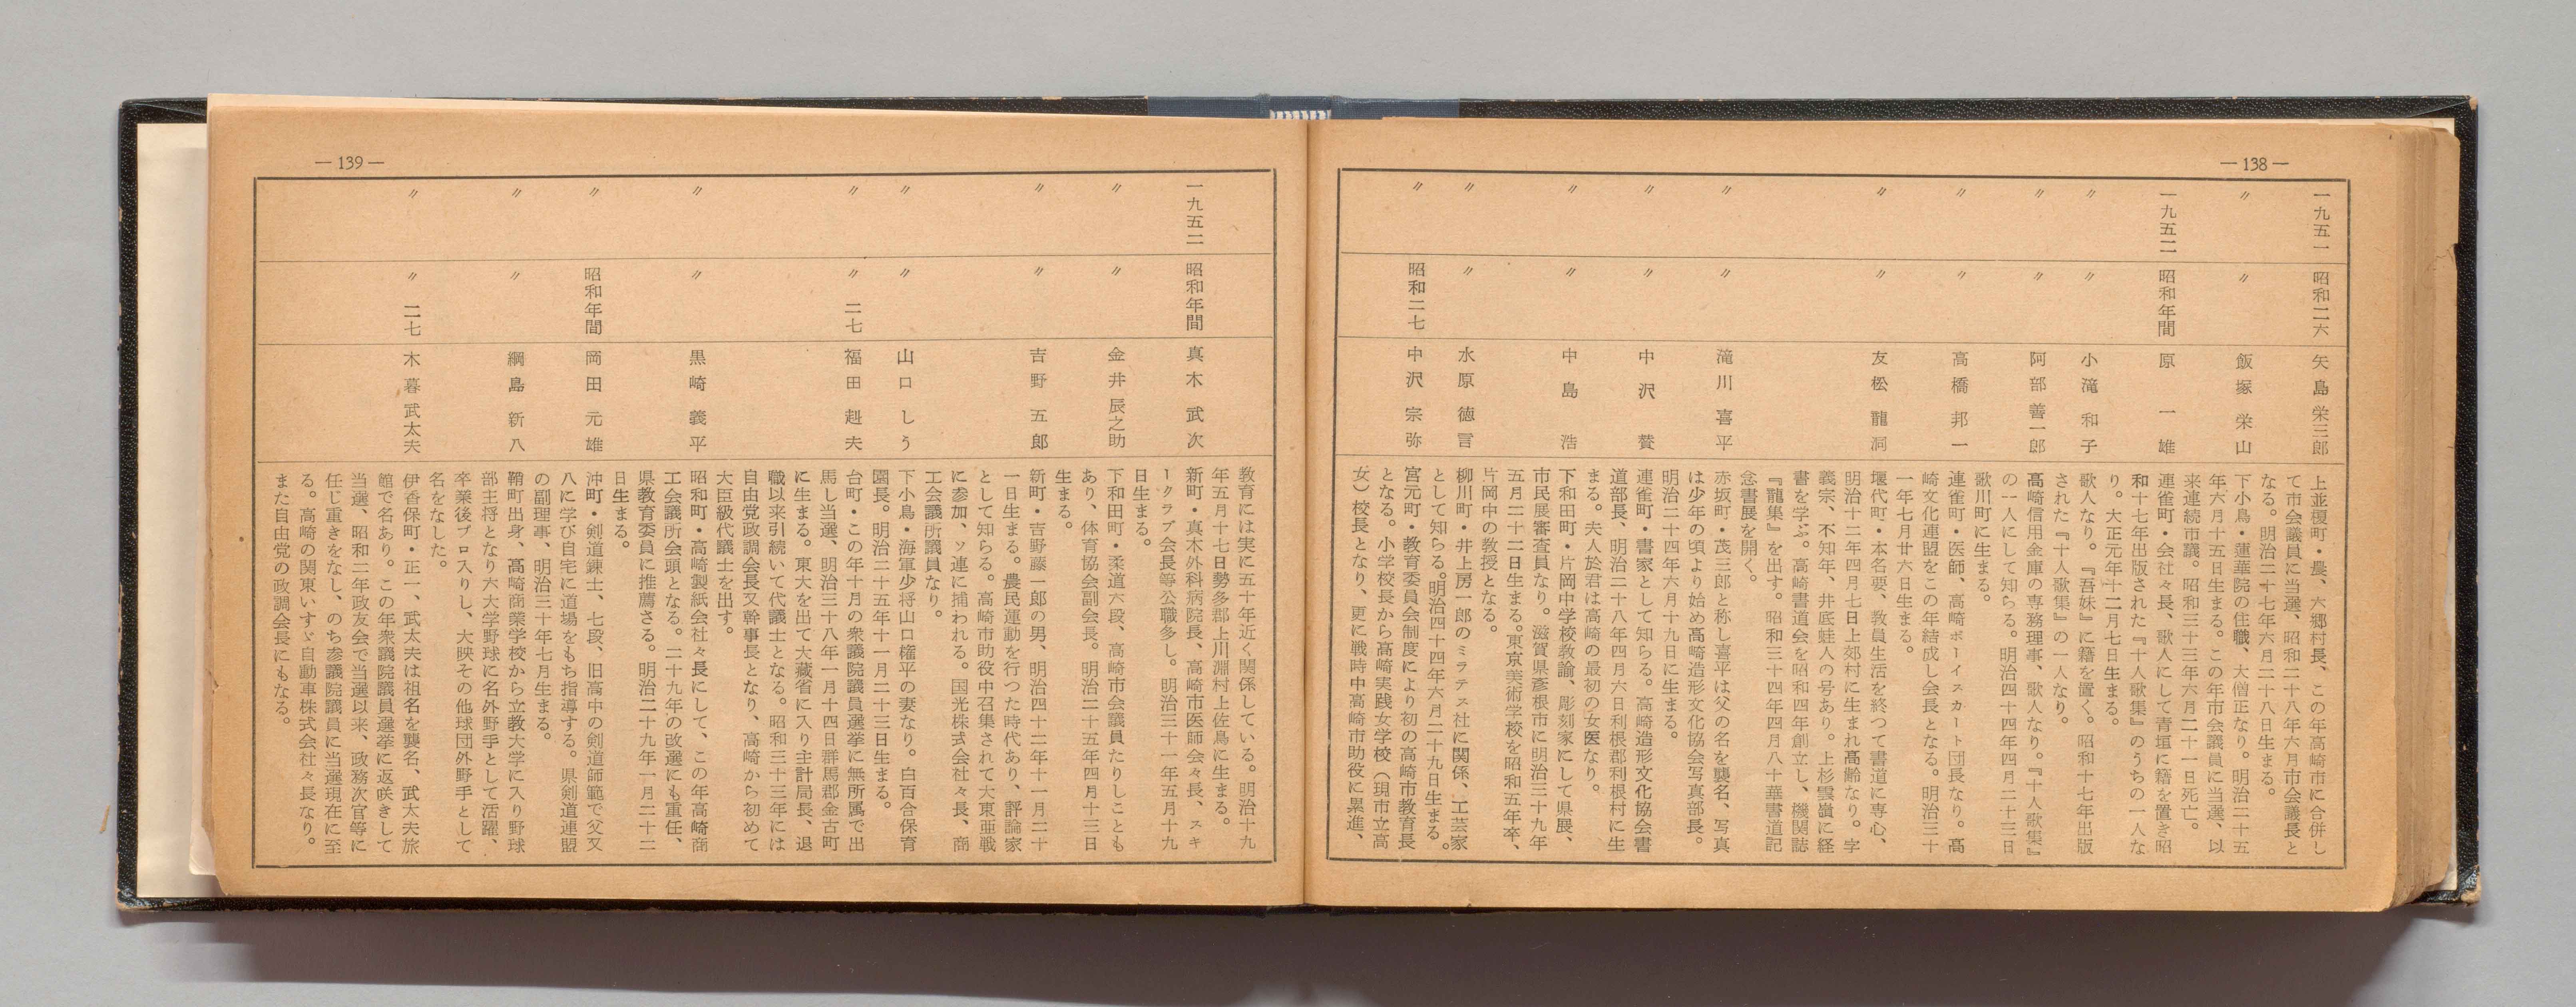 — 138 —
一九五一 昭和二六 矢島栄三郎
上並榎町・農、六郷村長、この年高崎市に合併し
て市会議員に当選、昭和二十八年六月市会議長と
なる。明治二十七年六月二十八日生まる。
〃 〃 飯塚栄山
下小鳥・蓮華院の住職、大僧正なり。明治二十五
年六月十五日生まる。この年市会議員に当選、以
来連続市議。昭和三十三年六月二十一日死亡。
一九五二 昭和年間 原一雄
連雀町・会社々長、歌人にして青垣に籍を置き昭
和十七年出版された『十人歌集』のうちの一人な
り。大正元年十二月七日生まる。
〃 〃 小滝和子
歌人なり。『吾妹』に籍を置く。昭和十七年出版
された『十人歌集』の一人なり。
〃 〃 阿部善一郎
高崎信用金庫の専務理事、歌人なり。『十人歌集』
の一人にして知らる。明治四十四年四月二十三日
歌川町に生まる。
〃 〃 高橋邦一
連雀町・医師、高崎ボーイスカート団長なり。高
崎文化連盟をこの年結成し会長となる。明治三十
一年七月廿六日生まる。
〃 〃 友松龍洞
堰代町・本名要、教員生活を終つて書道に専心、
明治十二年四月七日上郊村に生まれ高齢なり。字
義宗、不知年、井底蛙人の号あり。上杉雲嶺に経
書を学ぶ。高崎書道会を昭和四年創立し、機関誌
『龍集』を出す。昭和三十四年四月八十華書道記
念書展を開く。
〃 〃 滝川喜平
赤坂町・茂三郎と称し喜平は父の名を襲名、写真
は少年の頃より始め高崎造形文化協会写真部長。
明治二十四年六月十九日に生まる。
〃 〃 中沢賛
連雀町・書家として知らる。高崎造形文化協会書
道部長、明治二十八年四月六日利根郡利根村に生
まる。夫人於君は高崎の最初の女医なり。
〃 〃 中島浩
下和田町・片岡中学校教諭、彫刻家にして県展、
市民展審査員なり。滋賀県彦根市に明治三十九年
五月二十二日生まる。東京美術学校を昭和五年卒、
片岡中の教授となる。
〃 〃 水原徳言
柳川町・井上房一郎のミラテス社に関係、工芸家
として知らる。明治四十四年六月二十九日生まる。
〃 昭和二七 中沢宗弥
宮元町・教育委員会制度により初の高崎市教育長
となる。小学校長から高崎実践女学校（現市立高
女）校長となり、更に戦時中高崎市助役に累進、
— 139 —
教育には実に五十年近く関係している。明治十九
年五月十七日勢多郡上川淵村上佐鳥に生まる。
一九五二 昭和年間 真木武次
新町・真木外科病院長、高崎市医師会々長、スキ
ークラブ会長等公職多し。明治三十一年五月十九
日生まる。
〃 〃 金井辰之助
下和田町・柔道六段、高崎市会議員たりしことも
あり、体育協会副会長。明治二十五年四月十三日
生まる。
〃 〃 吉野五郎
新町・吉野藤一郎の男、明治四十二年十一月二十
一日生まる。農民運動を行つた時代あり、評論家
として知らる。高崎市助役中召集されて大東亜戦
に参加、ソ連に捕われる。国光株式会社々長、商
工会議所議員なり。
〃 〃 山口しう
下小鳥・海軍少将山口権平の妻なり。白百合保育
園長。明治二十五年十一月二十三日生まる。
〃 〃 二七 福田赳夫
台町・この年十月の衆議院議員選挙に無所属で出
馬し当選、明治三十八年一月十四日群馬郡金古町
に生まる。東大を出て大蔵省に入り主計局長、退
職以来引続いて代議士となる。昭和三十三年には
自由党政調会長又幹事長となり、高崎から初めて
大臣級代議士を出す。
〃 〃 黒崎義平
昭和町・高崎製紙会社々長にして、この年高崎商
工会議所会頭となる。二十九年の改選にも重任、
県教育委員に推薦さる。明治二十九年一月二十二
日生まる。
〃 昭和年間 岡田元雄
沖町・剣道錬士、七段、旧高中の剣道師範で父又
八に学び自宅に道場をもち指導する。県剣道連盟
の副理事、明治三十年七月生まる。
〃 〃 綱島新八
鞘町出身、高崎商業学校から立教大学に入り野球
部主将となり六大学野球に名外野手として活躍、
卒業後プロ入りし、大映その他球団外野手として
名をなした。
〃 〃 二七 木暮武太夫
伊香保町・正一、武太夫は祖名を襲名、武太夫旅
館で名あり。この年衆議院議員選挙に返咲きして
当選、昭和二年政友会で当選以来、政務次官等に
任じ重きをなし、のち参議院議員に当選現在に至
る。高崎の関東いすゞ自動車株式会社々長なり。
また自由党の政調会長にもなる。